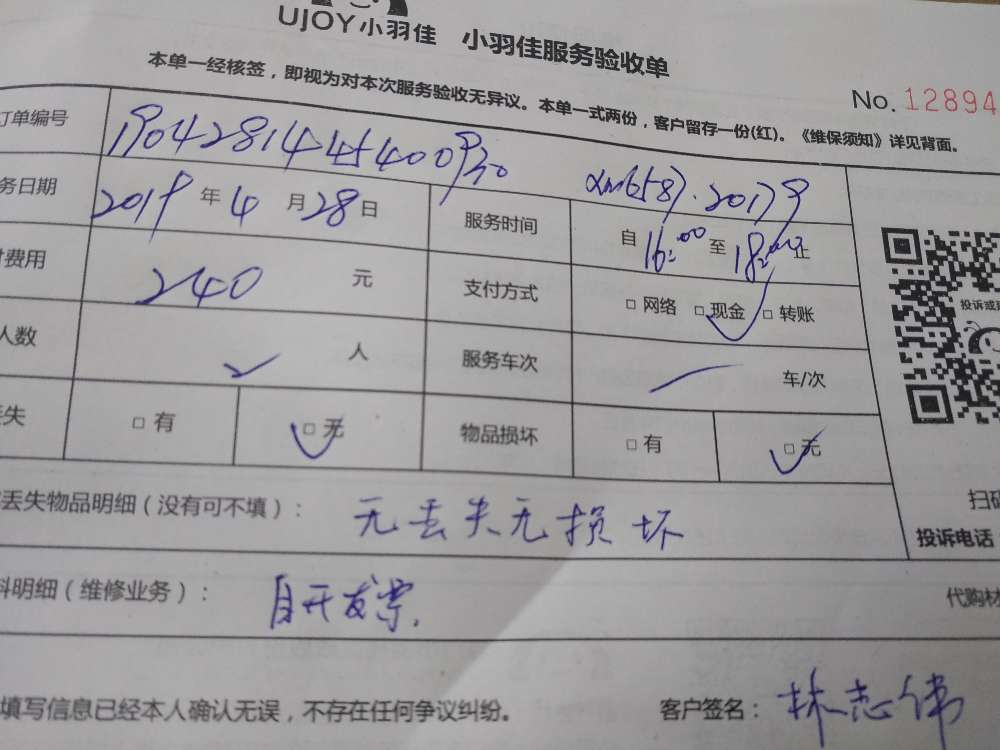 UJOY小羽佳 小羽佳服务验收单
本单一经核签，即视为对本次服务验收无异议。本单一式两份，客户留存一份(红)。《维保须知》详见背面。
No. 12894
订单编号
务日期 2019 年 4 月 28 日 服务时间 自 16:00 至 18:00 止
费用 240 元 支付方式 □ 网络 □ 现金 □ 转账
人数 人 服务车次 车/次
失 □ 有 □ 无 物品损坏 □ 有 □ 无
丢失物品明细（没有可不填）： 无丢失无损坏
料明细（维修业务）： 自开发票. 代购材
投诉或
扫码
投诉电话
填写信息已经本人确认无误，不存在任何争议纠纷。 客户签名： 林志伟